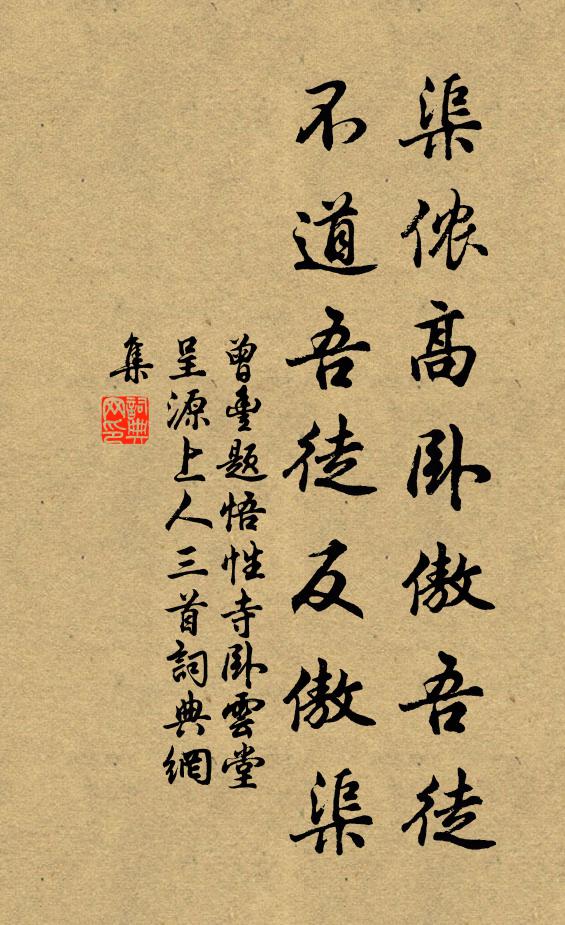 渠侬高卧傲吾徒
不道吾徒反傲渠
曾豐題悟性寺卧雲堂
呈源上人三首詞典網
集
詞典
网印